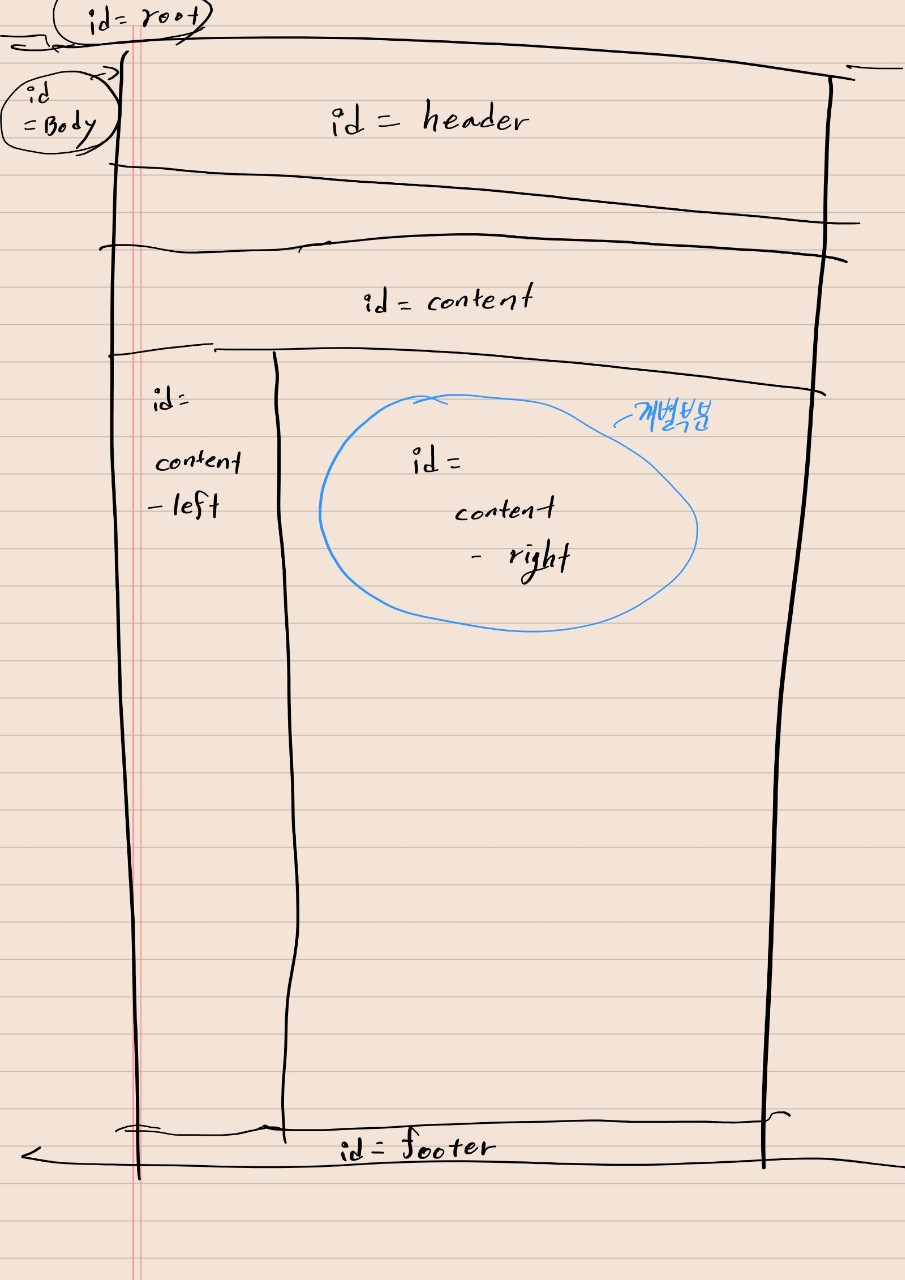 id = root
id
= Body
id = header
id = content
id =
content
- left
개별부분
id =
content
- right
id = footer